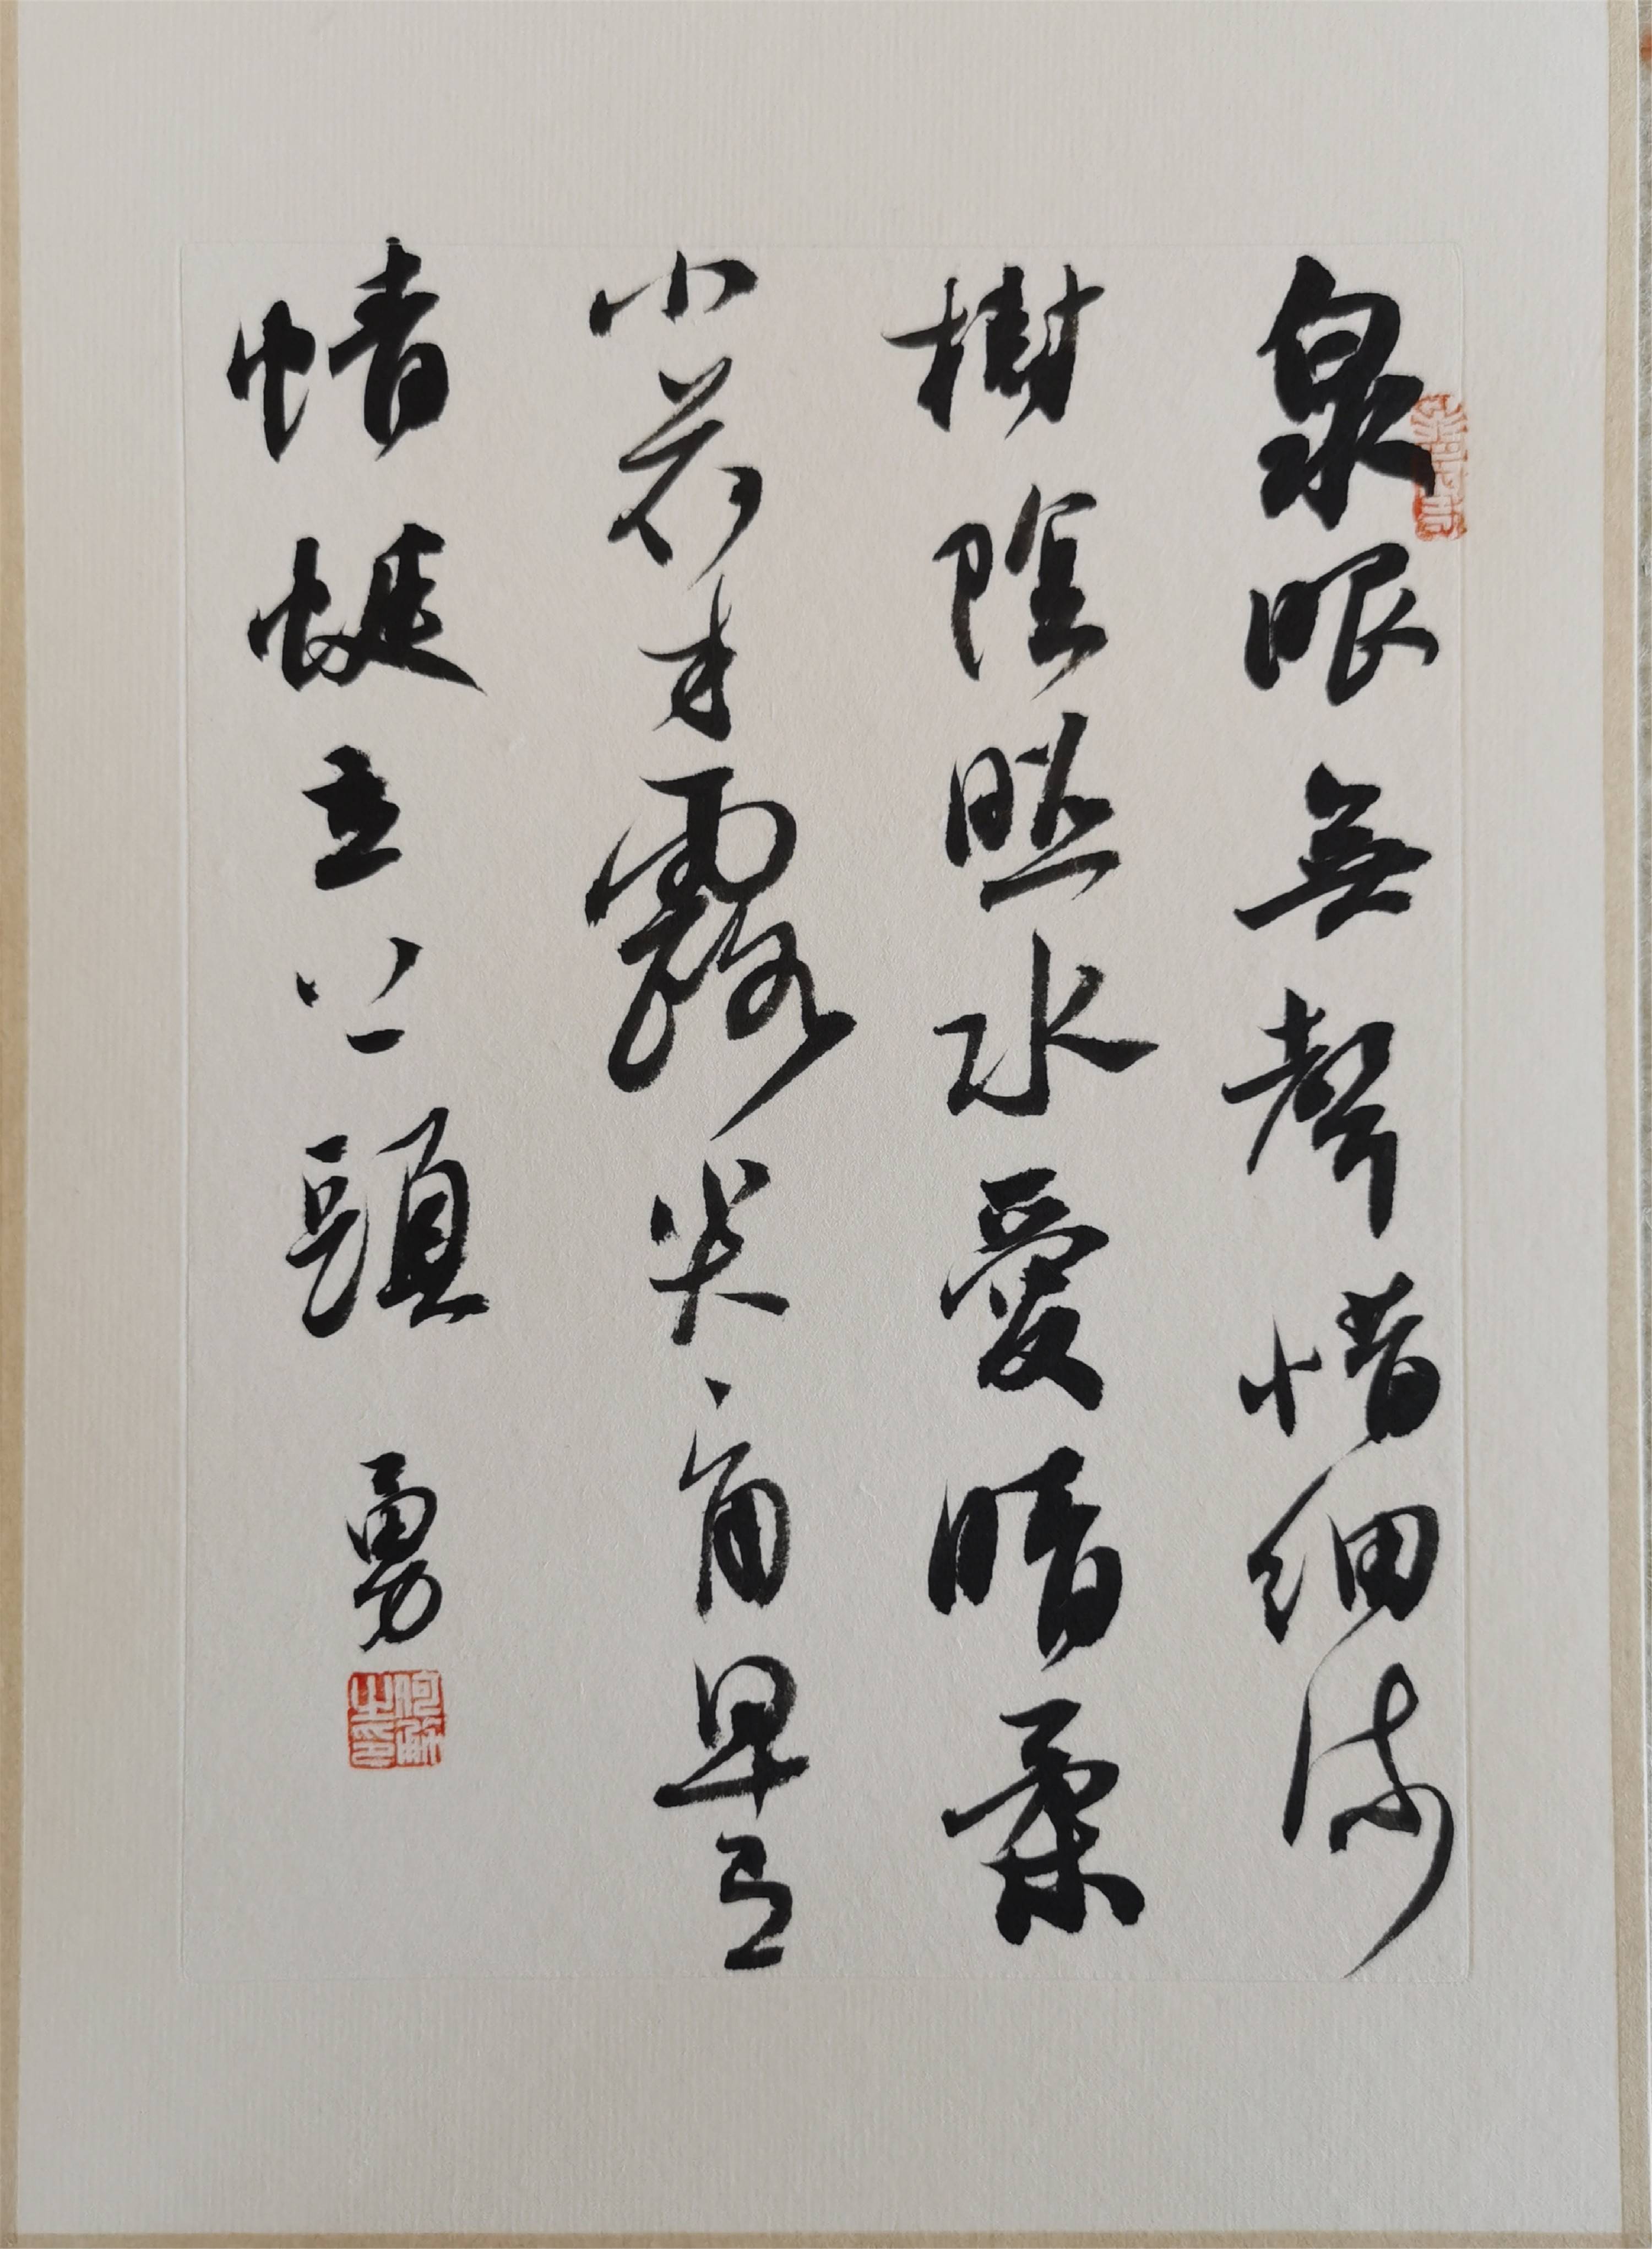 泉眼無聲惜細流
樹陰照水愛晴柔
小荷才露尖、角早有
蜻蜓立上頭 勇
何勇之印